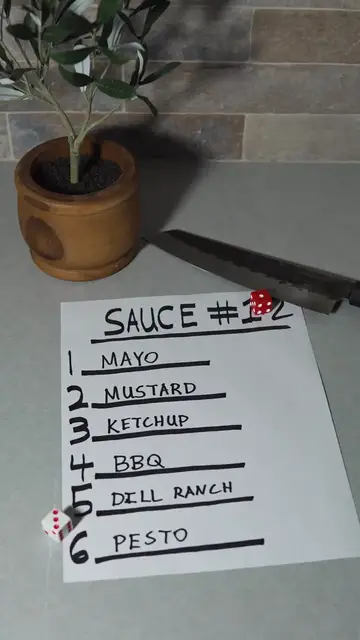 SAUCE #12
1 MAYO
2 MUSTARD
3 KETCHUP
4 BBQ
5 DILL RANCH
6 PESTO